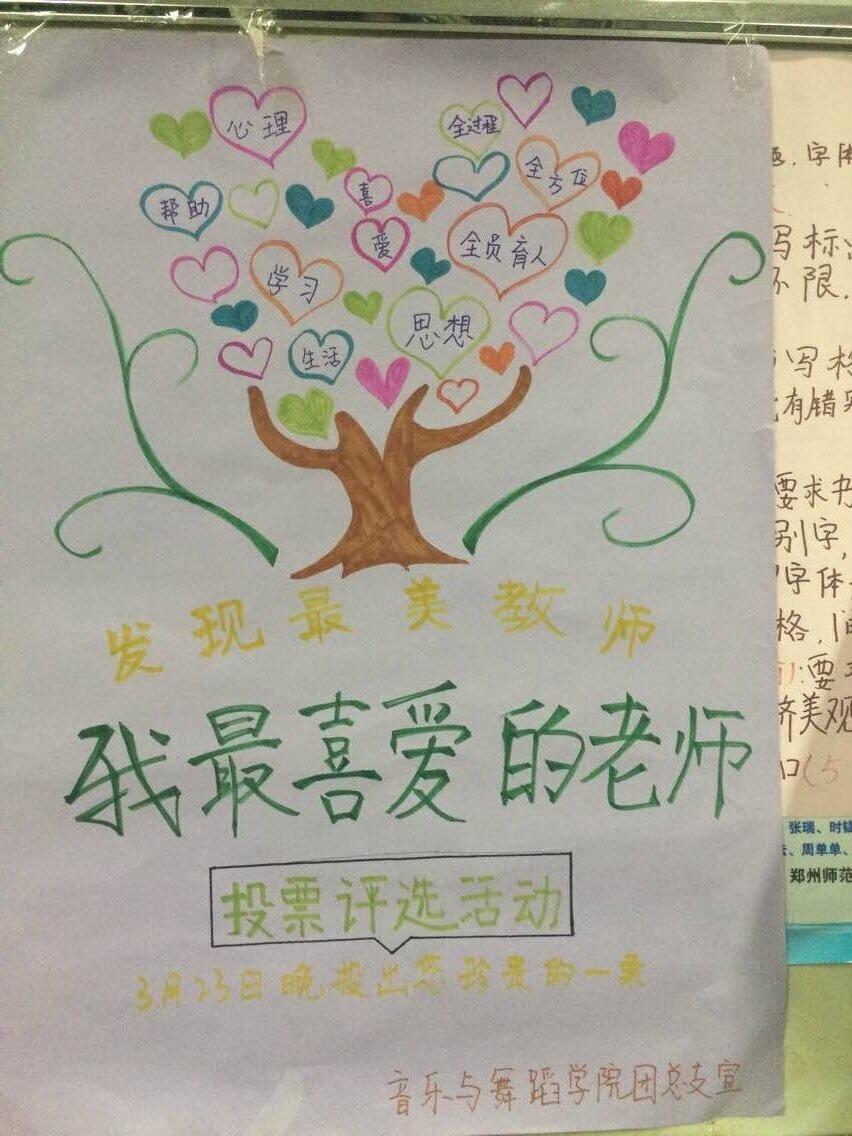 心理
全过程
全方位
帮助
喜
爱
全员育人
学习
思想
生活
发现最美教师
我最喜爱的老师
投票评选活动
3月23日晚投出您珍贵的一票
音乐与舞蹈学院团总支宣
字体
写标
不限.
写格
有错
要求书
别字,
字体
格,
要
济美观
口(5
张瑞、时
、周单单、
郑州师范